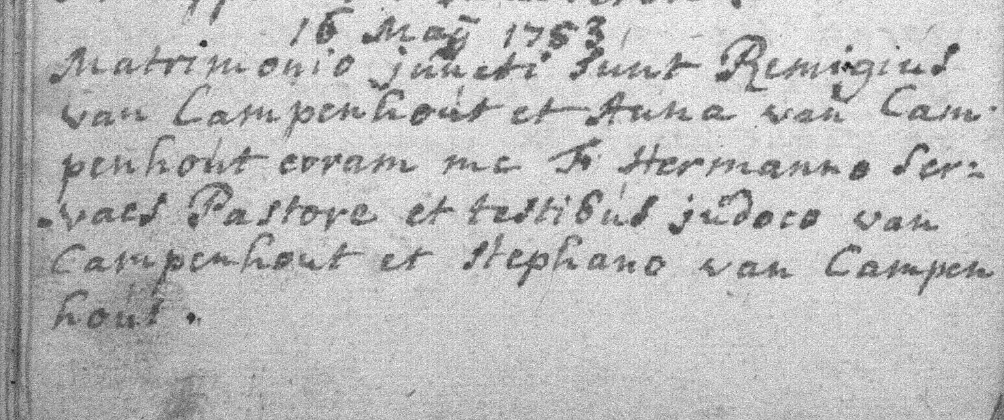 16 Maÿ 1753
Matrimonio juncti sunt Remigius
van Campenhout et Anna van Cam-
penhout coram me Fr Hermanno Ser=
vaes Pastore et testibus judoco van
Campenhout et stephano van Campen
hout.